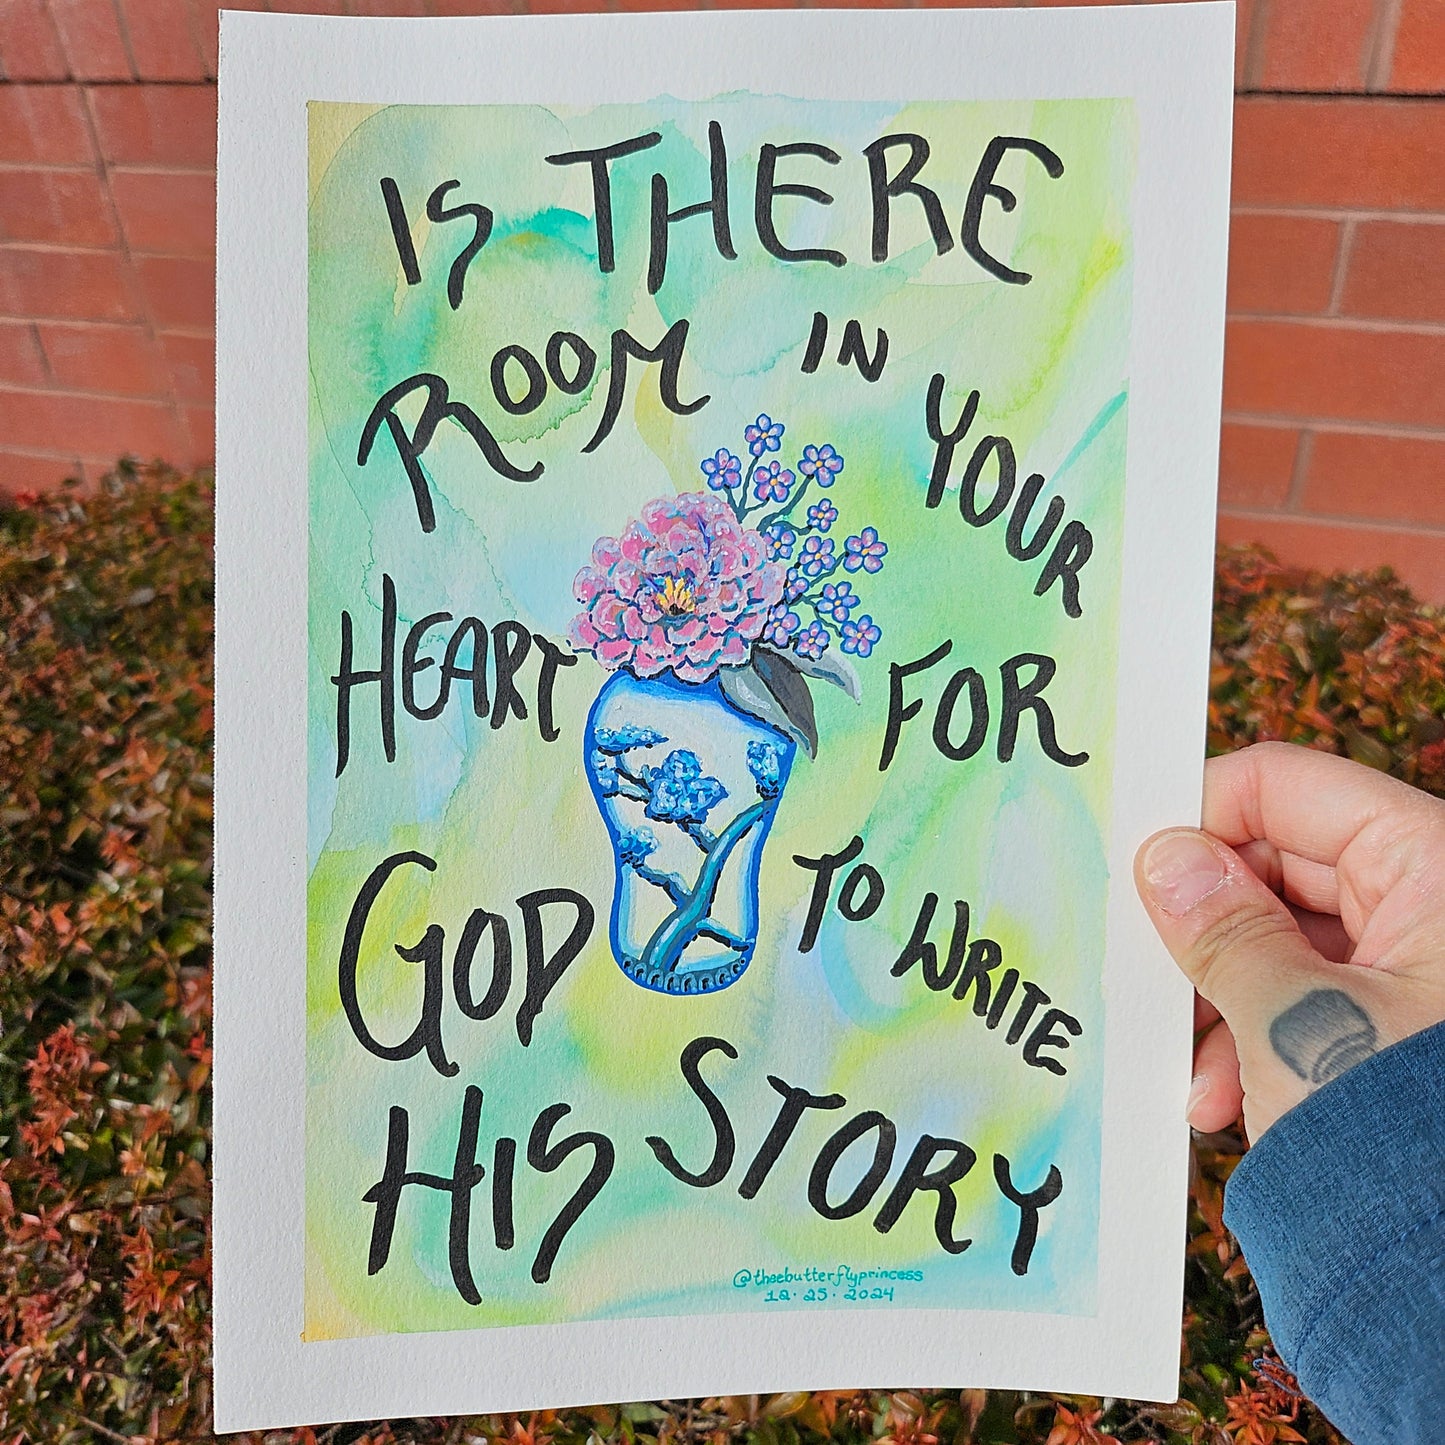 IS THERE
ROOM IN YOUR
HEART FOR
GOD TO WRITE
HIS STORY
@theebutterflyprincess
12.25.2024